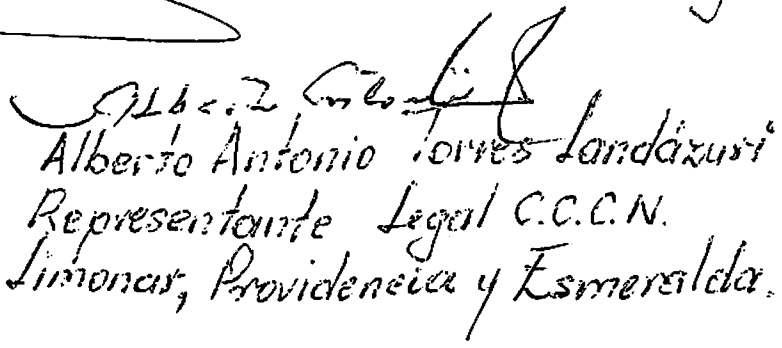 Alberto Antonio Torres Landázuri
Representante Legal C.C.C.N.
Limonar, Providencia y Esmeralda.